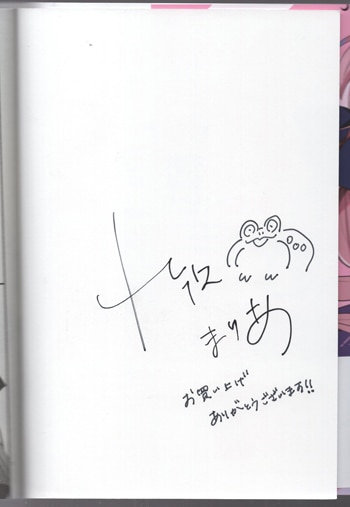 まりあ
お買い上げ
ありがとうございます!!